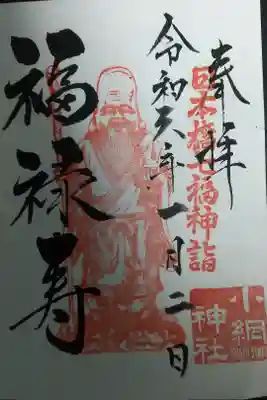 奉拝
日本橋七福神詣
令和六年一月二日
福禄寿
小網
神社